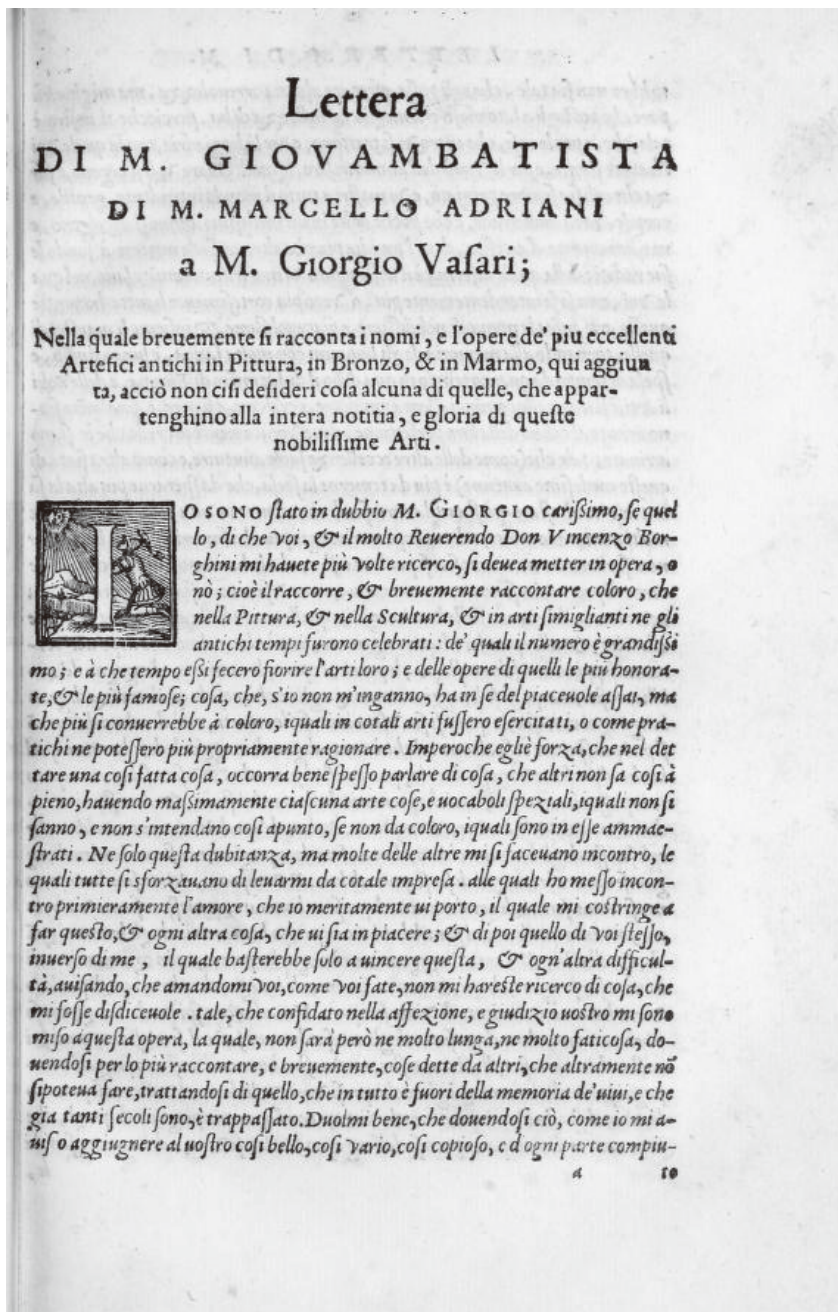 Lettera
DI M. GIOVAMBATISTA
DI M. MARCELLO ADRIANI
a M. Giorgio Vaſari;
Nella quale breuemente ſi racconta i nomi, e l'opere de' piu eccellenti
Artefici antichi in Pittura, in Bronzo, & in Marmo, qui aggiun
ta, acciò non ci ſi deſideri coſa alcuna di quelle, che appar-
tenghino alla intera notitia, e gloria di queſte
nobiliſſime Arti.
IO SONO ſtato in dubbio M. GIORGIO cariſſimo, ſe quel
lo, di che voi, & il molto Reuerendo Don Vincenzo Bor-
ghini mi hauete più volte ricerco, ſi deuea metter in opera, o
nò; cioè il raccorre, & breuemente raccontare coloro, che
nella Pittura, & nella Scultura, & in arti ſimiglianti ne gli
antichi tempi furono celebrati: de' quali il numero è grandiſſi
mo; e à che tempo eſſi fecero fiorire l'arti loro; e delle opere di quelli le più honora-
te, & le più famoſe; coſa, che, s'io non m'inganno, ha in ſe del piaceuole aſſai, ma
che più ſi conuerrebbe à coloro, iquali in cotali arti fuſſero eſercitati, o come pra-
tichi ne poteſſero più propriamente ragionare. Imperoche egli è forza, che nel det
tare una coſi fatta coſa, occorra bene ſpeſſo parlare di coſa, che altri non ſa coſi à
pieno, hauendo maſſimamente ciaſcuna arte coſe, e uocaboli ſpeziali, iquali non ſi
ſanno, e non s'intendano coſi apunto, ſe non da coloro, iquali ſono in eſſe ammae-
ſtrati. Ne ſolo queſta dubitanza, ma molte delle altre mi ſi faceuano incontro, le
quali tutte ſi sforzauano di leuarmi da cotale impreſa. alle quali ho meſſo incon-
tro primieramente l'amore, che io meritamente ui porto, il quale mi coſtringe a
far queſto, & ogni altra coſa, che ui ſia in piacere; & di poi quello di voi ſteſſo,
inuerſo di me, il quale baſterebbe ſolo a uincere queſta, & ogn'altra difficul-
tà, auiſando, che amandomi voi, come voi fate, non mi hareſte ricerco di coſa, che
mi foſſe diſdiceuole. tale, che confidato nella affezione, e giudizio uoſtro mi ſono
miſo a queſta opera, la quale, non ſarà però ne molto lunga, ne molto faticoſa, do-
uendoſi per lo più raccontare, e breuemente, coſe dette da altri, che altramente nõ
ſi poteua fare, trattandoſi di quello, che in tutto è fuori della memoria de' uiui, e che
gia tanti ſecoli ſono, è trappaſſato. Duolmi bene, che douendoſi ciò, come io mi a-
uiſo aggiugnere al uoſtro coſi bello, coſi vario, coſi copioſo, e d ogni parte compiu-
a to